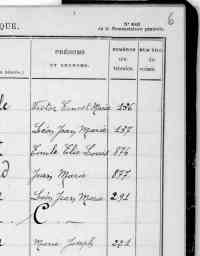 QUE.
N° 640
de la Nomenclature générale.
6
PRÉNOMS NUMÉROS NUMÉROS
ET SURNOMS.
Victor Ernest Marie 156
Léon Jean Marie 157
Emile Elie Louis 876
Jean Marie 877
Léon Jean Marie 291
C
Marie Joseph 221